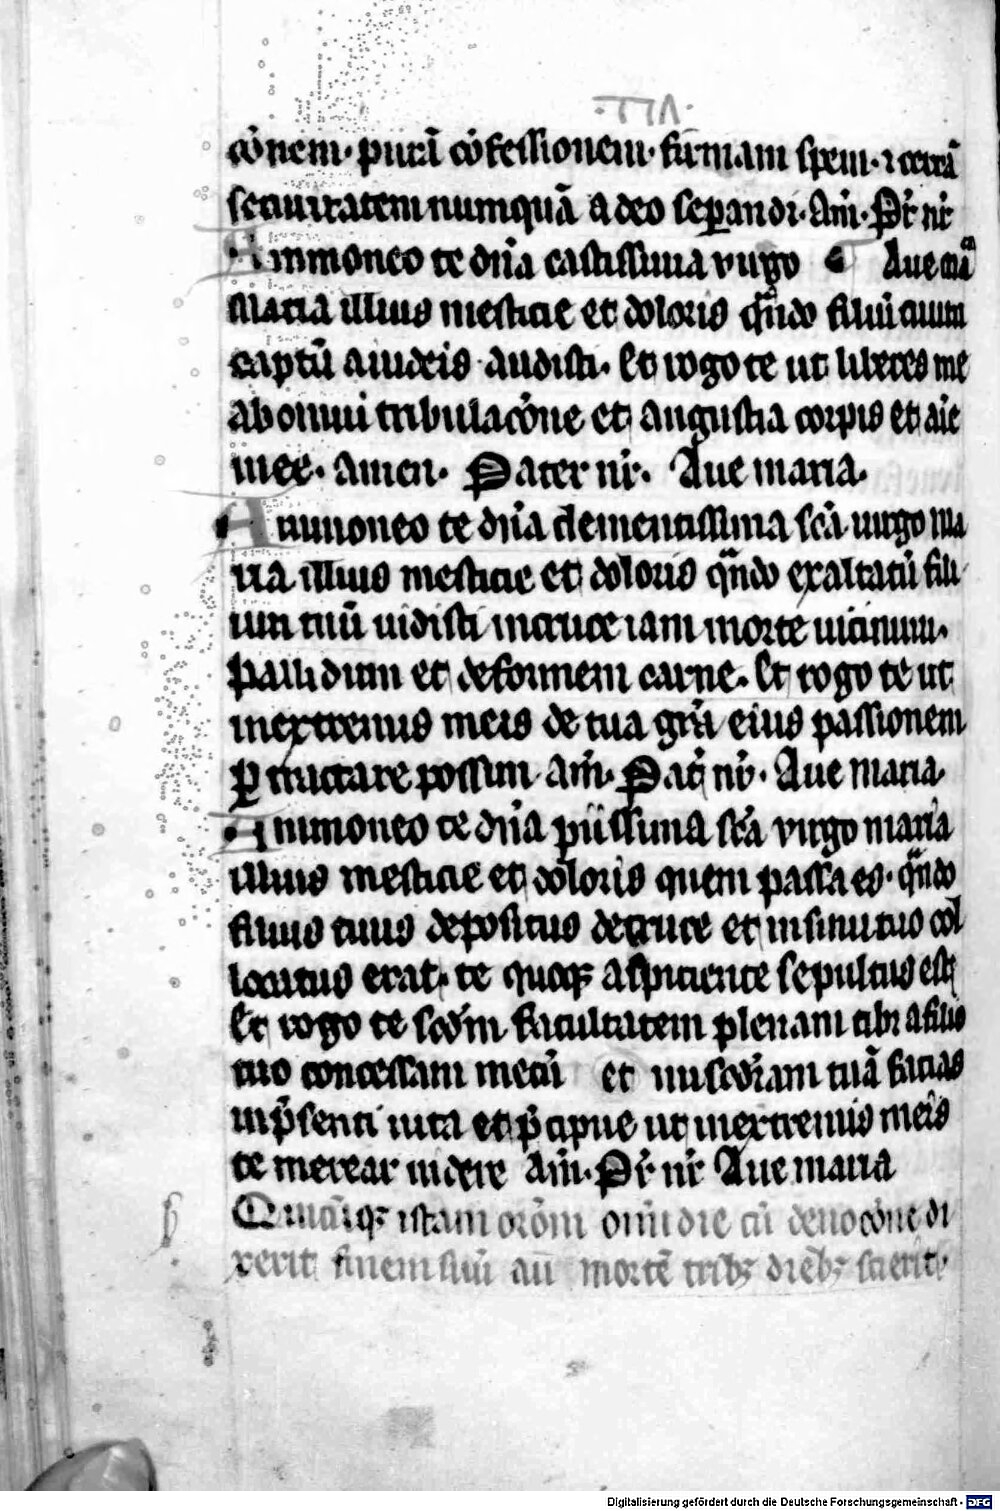 ·VII·
cōnem· purā cōfessionem· firmam spem· ⁊ certā
securitatem numquā a deo seꝑandi· Am̄· Pr̄ nr̄
Ammoneo te dn̄a castissima virgo Aue mᵃ
Maria illius mesticie et doloris qn̄do filiū tuum
captū a iudeis audisti· Et rogo te ut liberes me
ab omni tribulacōne et angustia corpis et aīe
mee· Amen· Pater nr̄· Aue maria·
Ammoneo te dn̄a clementissima scā uirgo ma
ria illius mesticie et doloris qn̄do exaltatū fili
um tuū uidisti in cruce iam morte uicinum·
Pallidum et deformem carne· Et rogo te ut
in extremis meis de tua grā eius passionem
ꝑtractare possim Am̄· Pat̄ nr̄· Aue maria
Ammoneo te dn̄a piissima scā virgo maria
illius mesticie et doloris quem passa es· qn̄do
filius tuus depositus de cruce et in sinu tuo col
locatus erat· te quoqꝫ aspiciente sepultus est
Et rogo te scdm̄ facultatem plenam tibi a filio
tuo concessam mecū et mīscdiam tuā facias
in p̄senti uita et p̄cipue ut in extremis meis
te merear uidere Am̄· Pr̄ nr̄ Aue maria
Quicūqꝫ istam orōm omī die cū deuocōne di
xerit finem suū an̄ mortē tribꝫ diebꝫ scierit·
Digitalisierung gefördert durch die Deutsche Forschungsgemeinschaft - DFG